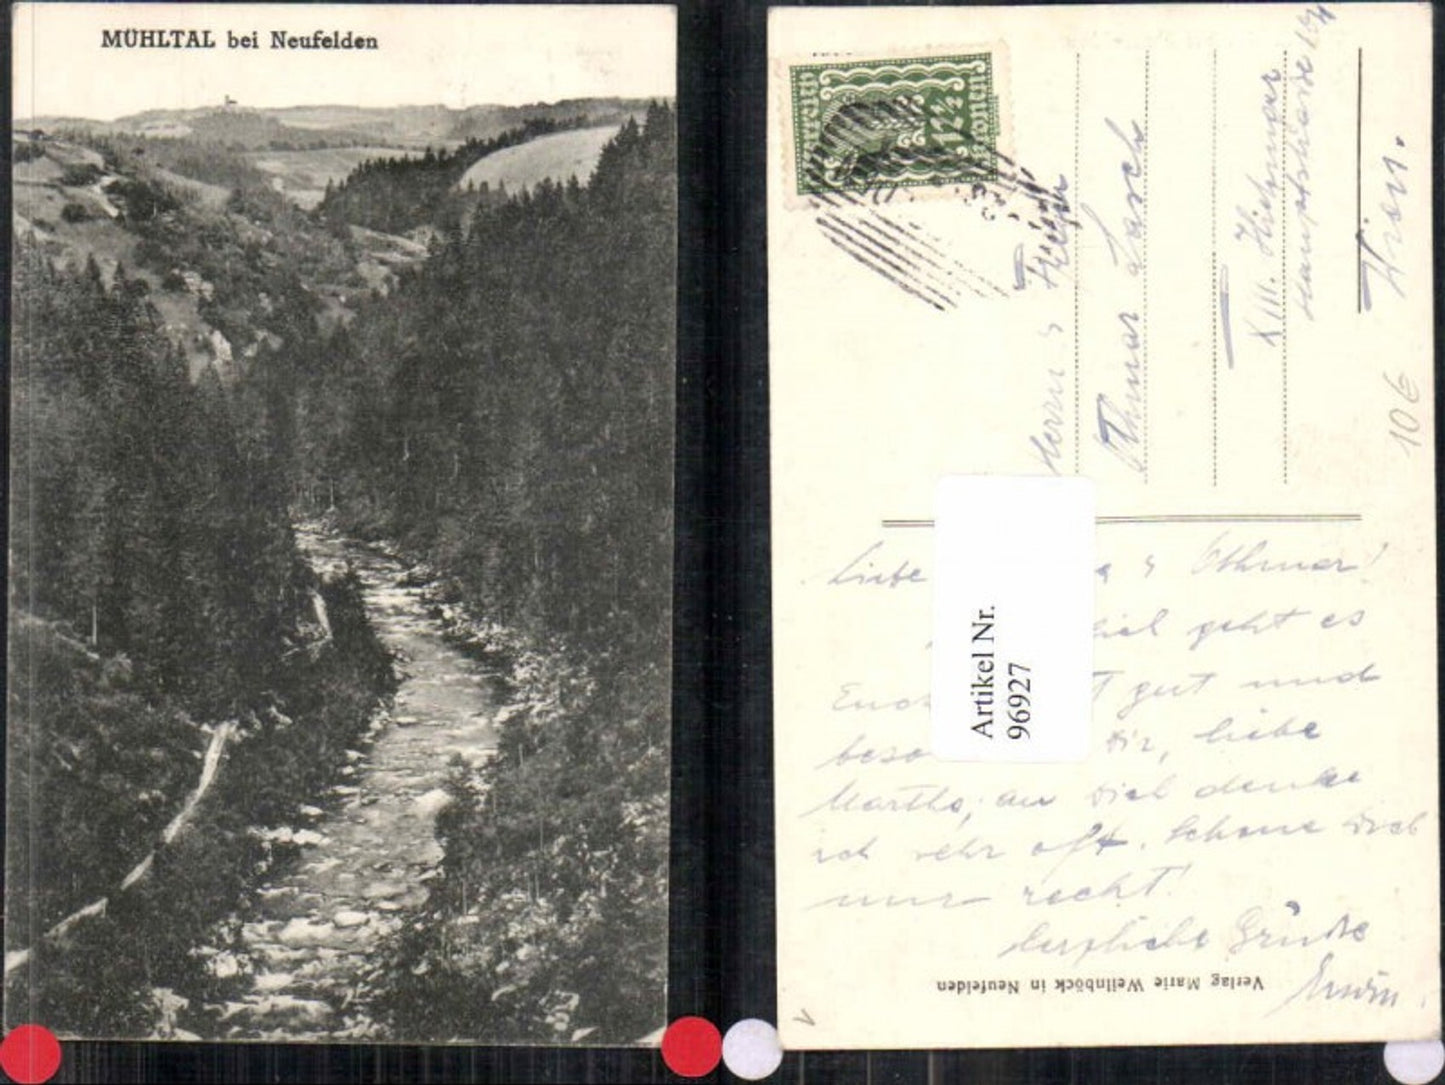 MÜHLTAL bei Neufelden
12½
Herrn & Frau
Othmar Lasch
XIII. Hietzinger
Hauptstrasse
Wien.
10 €
Artikel Nr.
96927
Liebe & Othmar!
geht es
gut und
Dir, liebe
Martha, an Dich denke
ich sehr oft. Schone Dich
nur recht!
herzliche Grüsse
Erwin.
Verlag Marie Wellnböck in Neufelden